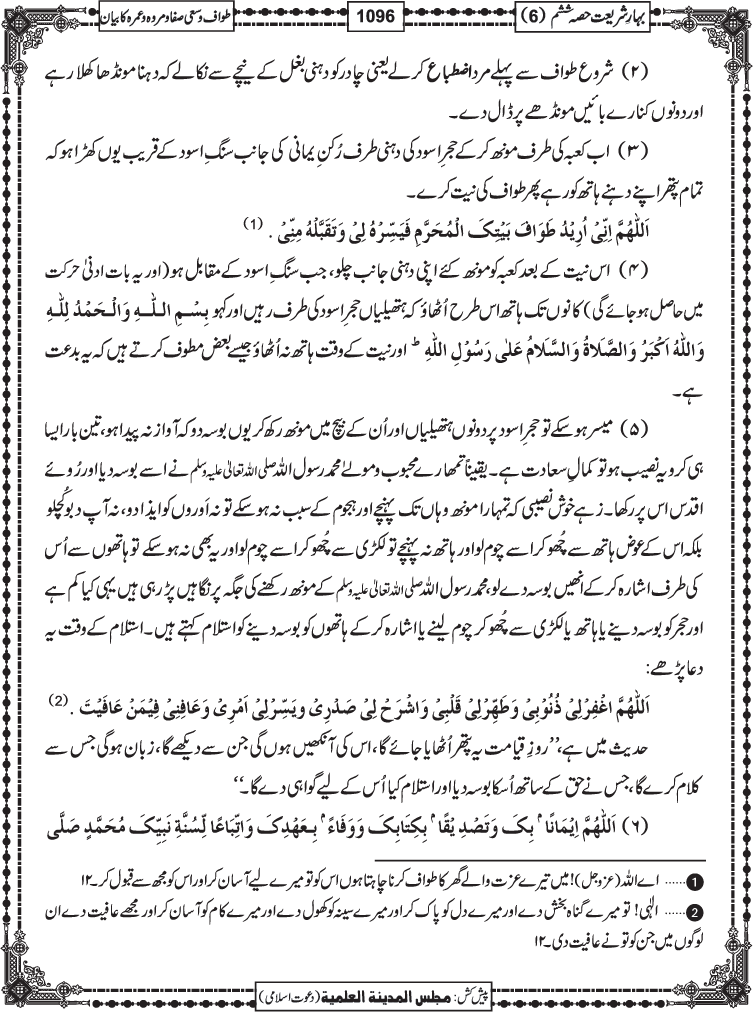 بہارِ شریعت حصہ ششم (6)
1096
طواف وسعی صفا و مروہ و عمرہ کا بیان
(۲) شروع طواف سے پہلے مرد اضطباع کرلے یعنی چادر کو دہنی بغل کے نیچے سے نکالے کہ دہنا مونڈھا کھلا رہے
اور دونوں کنارے بائیں مونڈھے پر ڈال دے۔
(۳) اب کعبہ کی طرف مونھ کرکے حجرِ اسود کی دہنی طرف رُکنِ یمانی کی جانب سنگِ اسود کے قریب یوں کھڑا ہو کہ
تمام پتھر اپنے دہنے ہاتھ کو رہے پھر طواف کی نیت کرے۔
اَللّٰھُمَّ اِنِّیْ اُرِیْدُ طَوَافَ بَیْتِکَ الْمُحَرَّمِ فَیَسِّرْہُ لِیْ وَتَقَبَّلْہُ مِنِّیْ . (1)
(۴) اس نیت کے بعد کعبہ کو مونھ کئے اپنی دہنی جانب چلو، جب سنگِ اسود کے مقابل ہو (اور یہ بات ادنیٰ حرکت
میں حاصل ہو جائے گی) کانوں تک ہاتھ اس طرح اٹھاؤ کہ ہتھیلیاں حجرِ اسود کی طرف رہیں اور کہو بِسْمِ اللّٰہِ وَالْحَمْدُ لِلّٰہِ
وَاللّٰہُ اَکْبَرُ وَالصَّلَاۃُ وَالسَّلَامُ عَلٰی رَسُوْلِ اللّٰہِ ط اور نیت کے وقت ہاتھ نہ اُٹھاؤ جیسے بعض مطوف کرتے ہیں کہ یہ بدعت
ہے۔
(۵) میسر ہوسکے تو حجرِ اسود پر دونوں ہتھیلیاں اور اُن کے بیچ میں مونھ رکھ کر یوں بوسہ دو کہ آواز نہ پیدا ہو، تین بار ایسا
ہی کرو یہ نصیب ہو تو کمالِ سعادت ہے۔ یقیناً تمھارے محبوب و مولےٰ محمد رسول اللہ صلی اللہ تعالیٰ علیہ وسلم نے اسے بوسہ دیا اور رُوئے
اقدس اس پر رکھا۔ زہے خوش نصیبی کہ تمہارا مونھ وہاں تک پہنچے اور ہجوم کے سبب نہ ہو سکے تو نہ اَوروں کو ایذا دو، نہ آپ دبو کُچلو
بلکہ اس کے عوض ہاتھ سے چُھو کر اسے چوم لو اور ہاتھ نہ پہنچے تو لکڑی سے چُھو کر اسے چوم لو اور یہ بھی نہ ہوسکے تو ہاتھوں سے اُس
کی طرف اشارہ کرکے اُنھیں بوسہ دے لو، محمد رسول اللہ صلی اللہ تعالیٰ علیہ وسلم کے مونھ رکھنے کی جگہ پر نگاہیں پڑ رہی ہیں یہی کیا کم ہے
اور حجر کو بوسہ دینے یا ہاتھ یا لکڑی سے چُھو کر چوم لینے یا اشارہ کرکے ہاتھوں کو بوسہ دینے کو استلام کہتے ہیں۔ استلام کے وقت یہ
دعا پڑھے:
اَللّٰھُمَّ اغْفِرْلِیْ ذُنُوْبِیْ وَطَھِّرْلِیْ قَلْبِیْ وَاشْرَحْ لِیْ صَدْرِیْ ویَسِّرْلِیْ اَمْرِیْ وَعَافِنِیْ فِیْمَنْ عَافَیْتَ . (2)
حدیث میں ہے، ’’روزِ قیامت یہ پتھر اُٹھایا جائے گا، اس کی آنکھیں ہوں گی جن سے دیکھے گا، زبان ہوگی جس سے
کلام کرے گا، جس نے حق کے ساتھ اُسکا بوسہ دیا اور استلام کیا اُس کے لیے گواہی دے گا۔‘‘
(۶) اَللّٰھُمَّ اِیْمَانًا ۢ بِکَ وَتَصْدِ یْقًا ۢ بِکِتَابِکَ وَوَفَاءً ۢ بِعَھْدِکَ وَاتِّبَاعًا لِّسُنَّۃِ نَبِیِّکَ مُحَمَّدٍ صَلَّی
1 ...... اے اللہ (عزوجل)! میں تیرے عزت والے گھر کا طواف کرنا چاہتا ہوں اس کو تو میرے لیے آسان کر اور اس کو مجھ سے قبول کر۔۱۲
2 ...... الٰہی! تو میرے گناہ بخش دے اور میرے دل کو پاک کر اور میرے سینہ کو کھول دے اور میرے کام کو آسان کر اور مجھے عافیت دے ان
لوگوں میں جن کو تو نے عافیت دی۔۱۲
پیش کش: مجلس المدینۃ العلمیۃ (دعوت اسلامی)